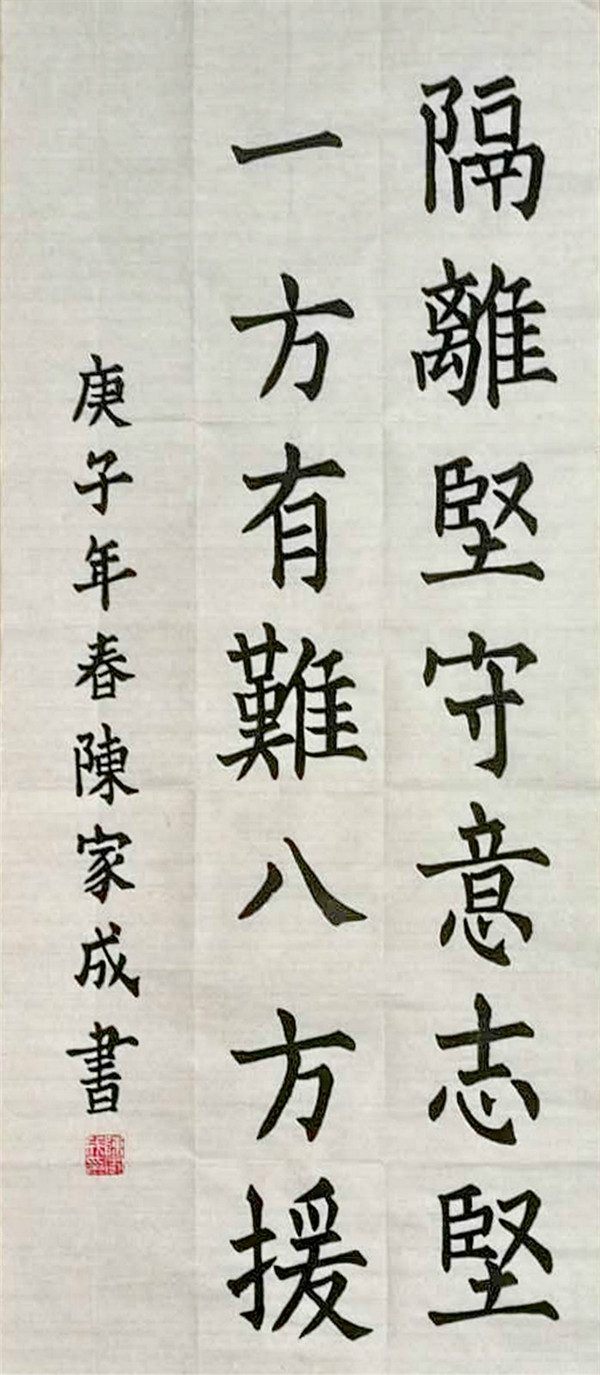 隔離堅守意志堅
一方有難八方援
庚子年春陳家成書